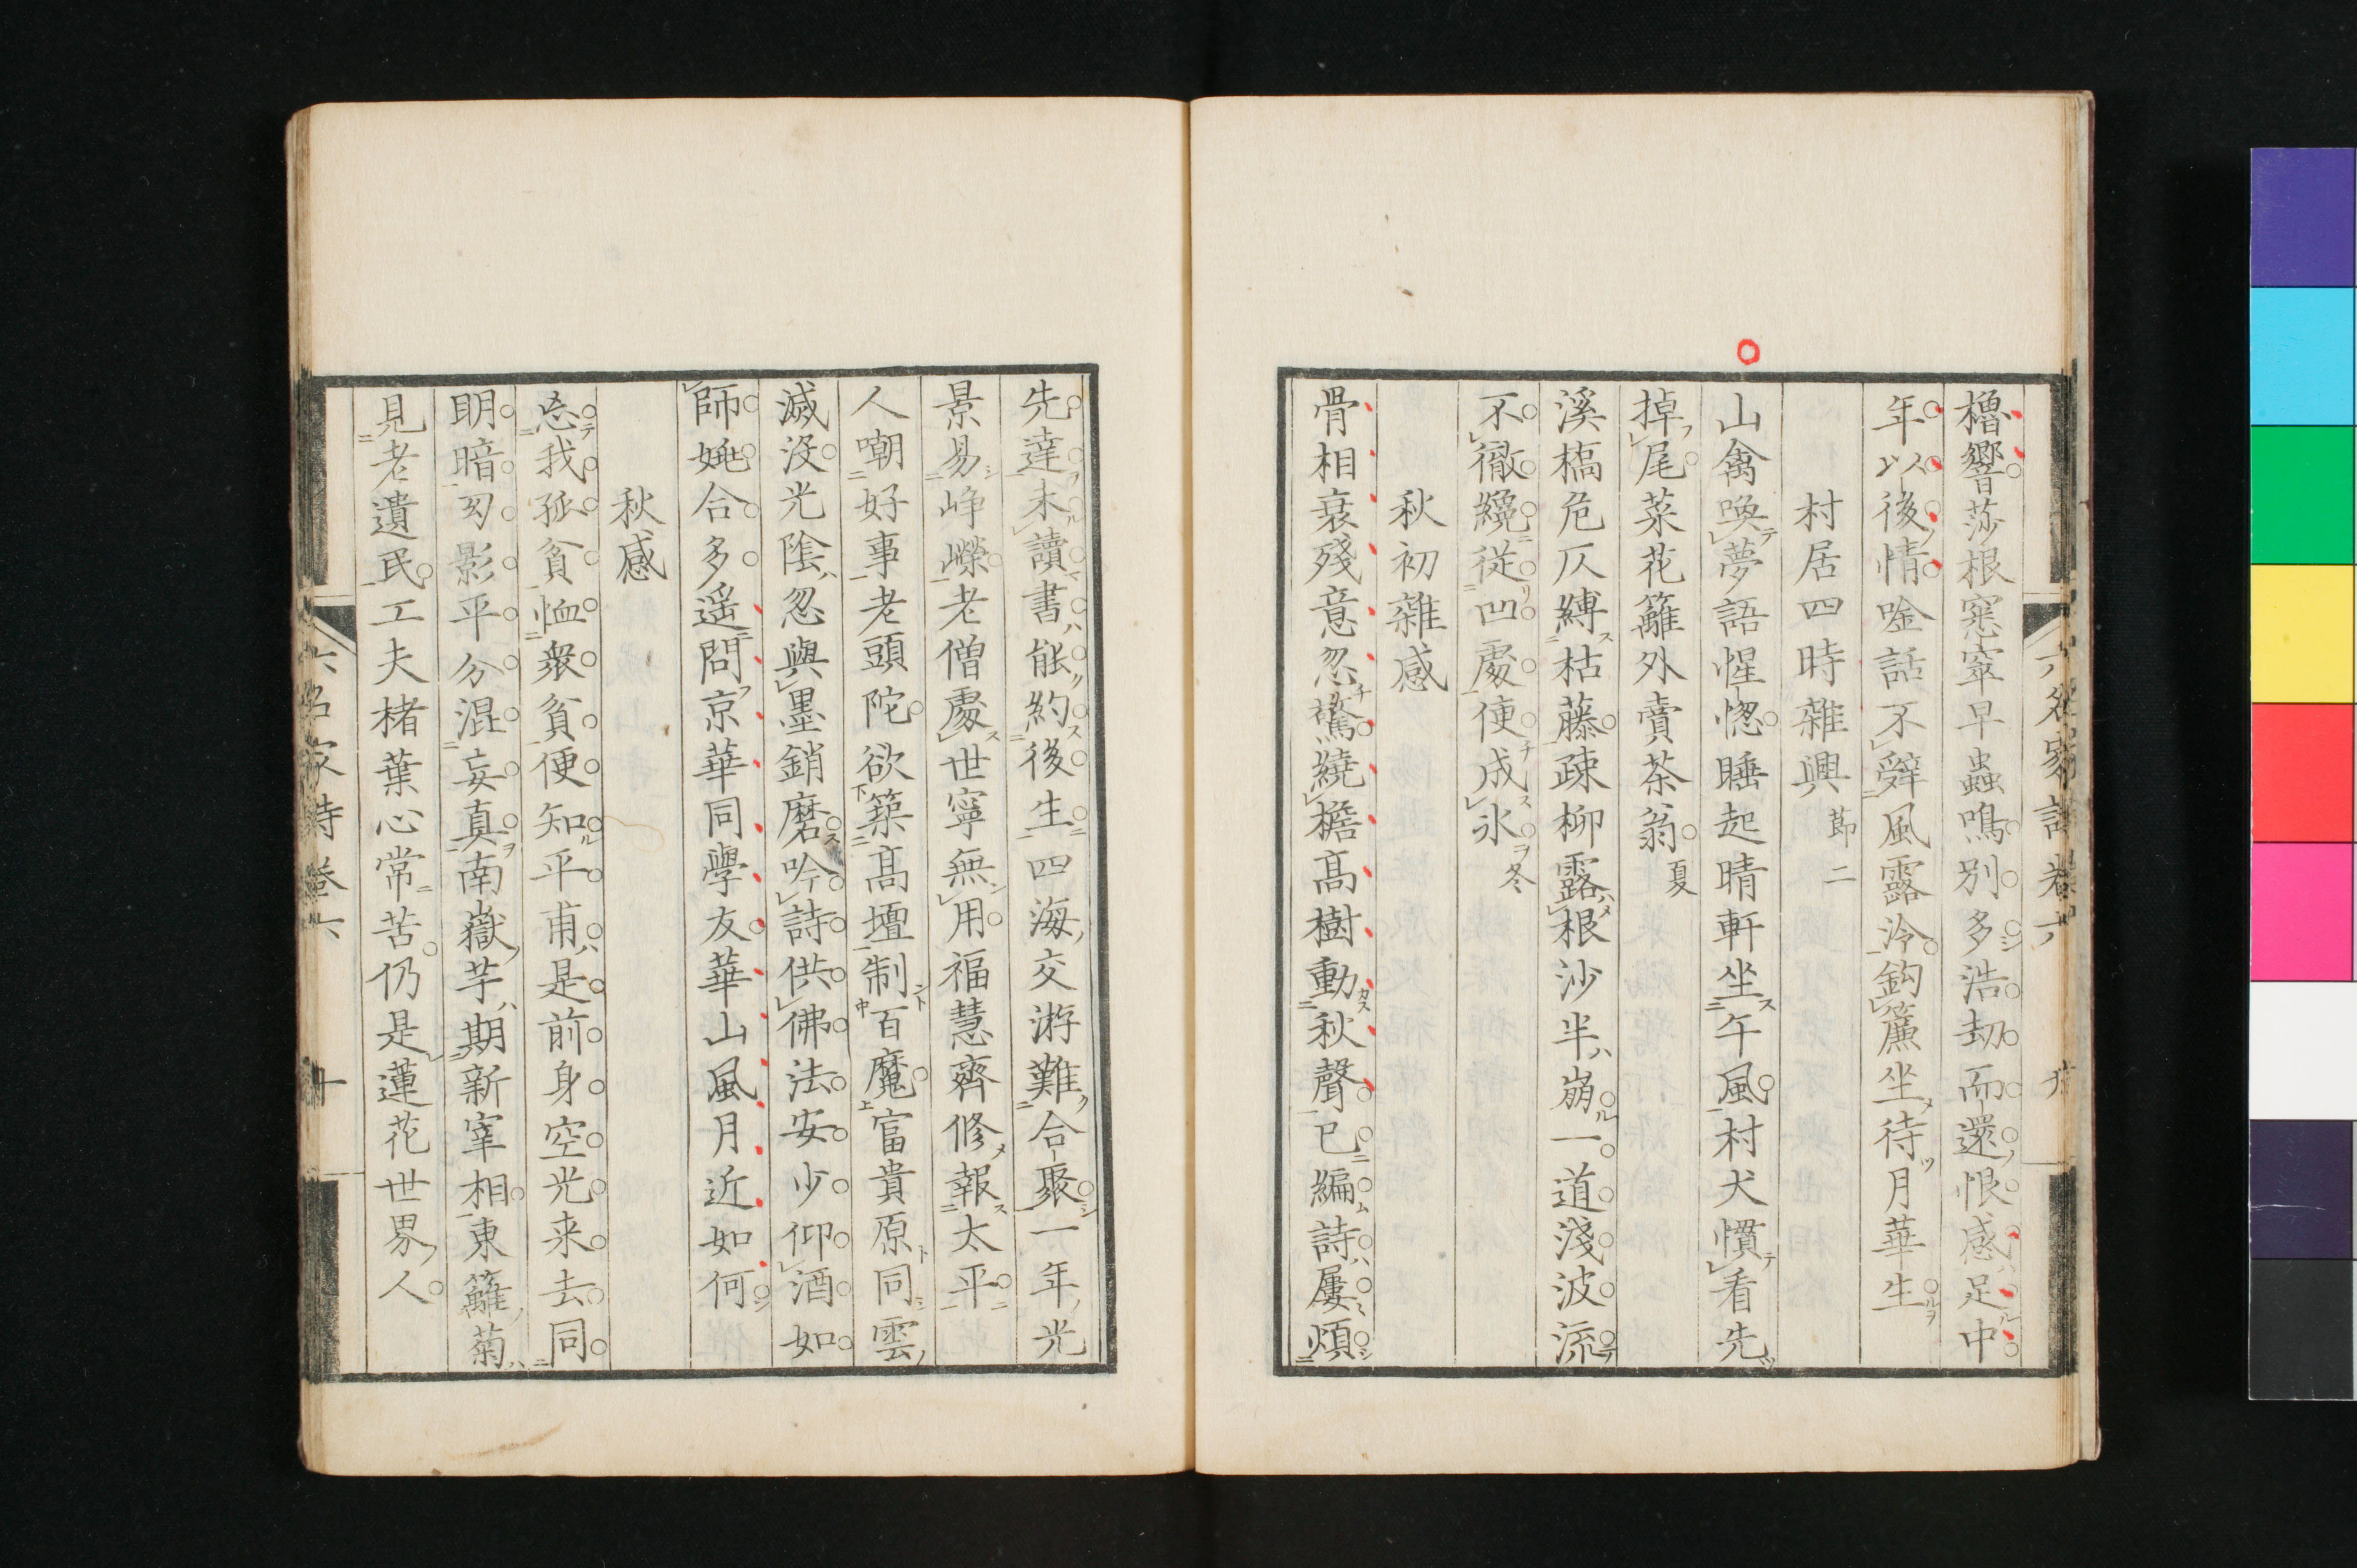 櫓響莎根窓窣早蟲鳴別多浩劫而還恨感足中
年以後情唫話不辭風露泠鈎簾坐待月華生
村居四時雜興節二
山禽喚夢語惺惚睡起晴軒坐午風村犬慣看先
掉尾菜花籬外賣茶翁夏
溪槗危仄縛枯藤疎柳露根沙半崩一道淺波流
不徹纔從凹處便成氷冬
秋初雜感
骨相衰殘意忽驚繞檐髙樹動秋聲已編詩屢煩
先達未讀書能約後生四海交游難合聚一年光
景易崢嶸老僧處世寧無用福慧齊修報太平
人嘲好事老頭陀欲築髙壇制百魔富貴原同雲
滅沒光陰忽與墨銷磨吟詩供佛法安少仰酒如
師娩合多遥問京華同學友華山風月近如何
秋感
忘我孤貧恤衆貧便知平甫是前身空光来去同
明暗幻影平分混妄真南嶽芋期新宰相東籬菊
見老遺民工夫楮葉心常苦仍是蓮花世界人
六名家詩卷六 十